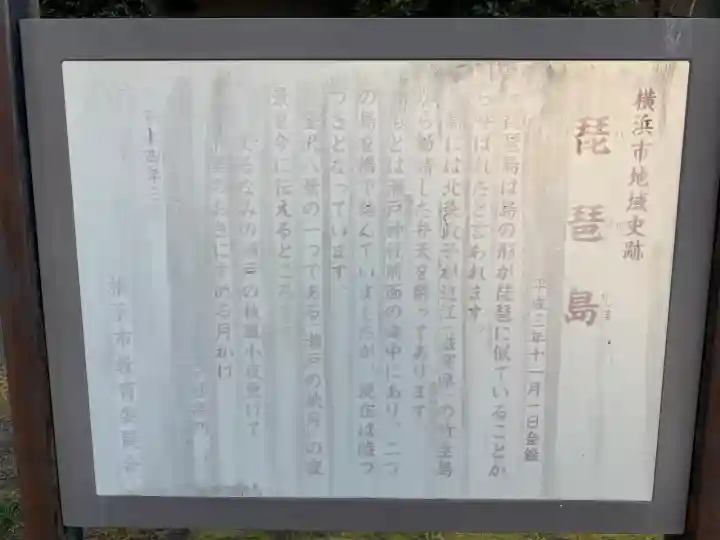 横浜市地域史跡
琵琶島
平成三年十一月一日登録
琵琶島は島の形が琵琶に似ていることか
らそばれたと言われます。
島には北条政子が近江（滋賀県）の竹生島
から勧請した弁天を祭ってあります。
もとは瀬戸神社前面の海中にあり、二つ
の島を橋で結んでいましたが、現在は陸つ
づきとなっています。
金沢八景の一つである「瀬戸の秋月」の夜
景を今に伝えるところ
よるなみの瀬戸の秋風小夜更けて
千里のおきにすめる月かげ
横浜市教育委員会